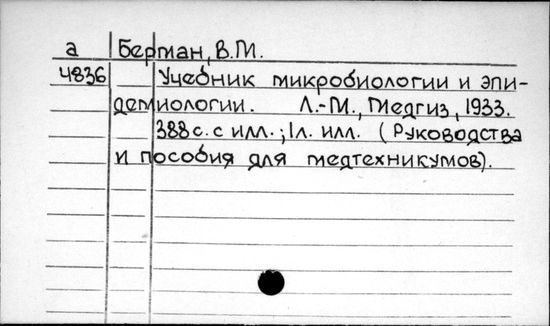 а Берман, В.М.
4836 Учебник микробиологии и эпи-
демиологии. Л.-М., Медгиз, 1933.
388 с. с илл.; 1л. илл. (Руководства
и пособия для медтехникумов).